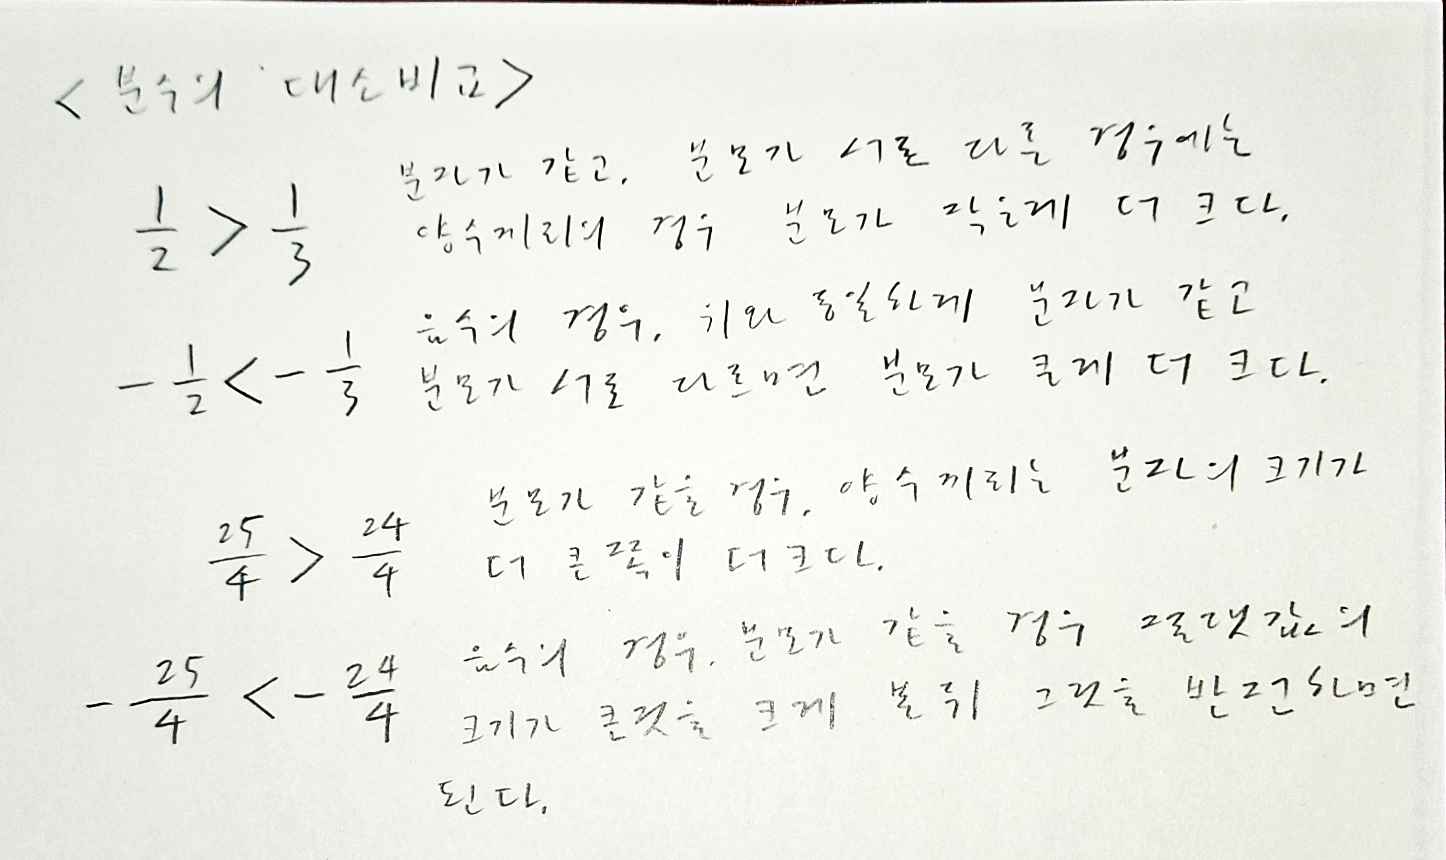 <분수의 대소비교>
1/2 > 1/3 분자가 같고, 분모가 서로 다른 경우에는
양수끼리의 경우 분모가 작은게 더 크다.
-1/2 < -1/3 음수의 경우, 위와 동일하게 분자가 같고
분모가 서로 다르면 분모가 큰게 더 크다.
25/4 > 24/4 분모가 같을 경우, 양수끼리는 분자의 크기가
더 큰쪽이 더 크다.
-25/4 < -24/4 음수의 경우, 분모가 같을 경우 절댓값의
크기가 큰것을 크게 본 뒤 그것을 반전하면
된다.